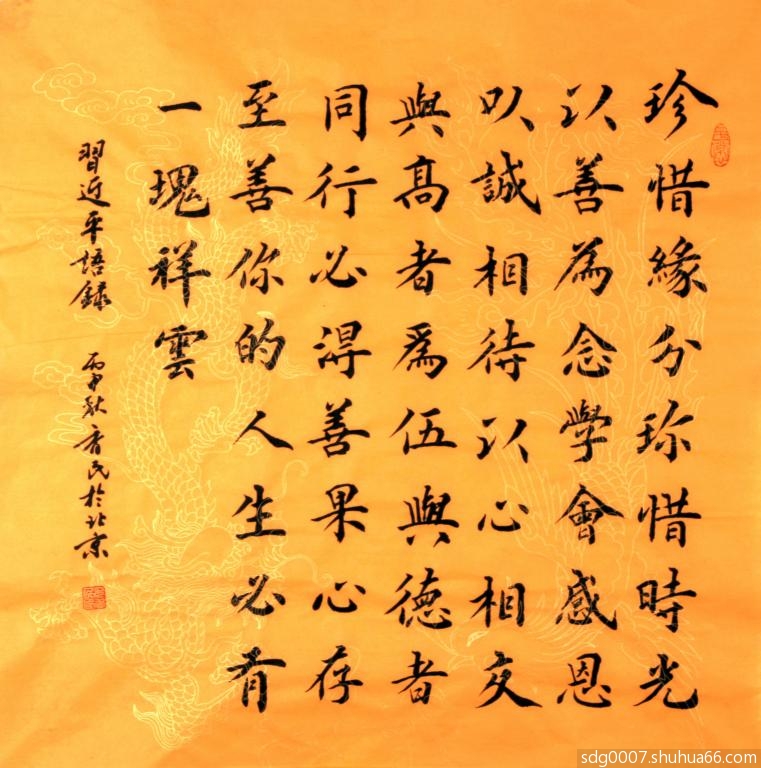 珍惜緣分珎惜時光
以善為念學會感恩
以誠相待以心相交
與髙者為伍與德者
同行必淂善果心存
至善你的人生必有
一塊祥雲
習近平語錄
丙申秋民於北京
sdg0007.shuhua66.com